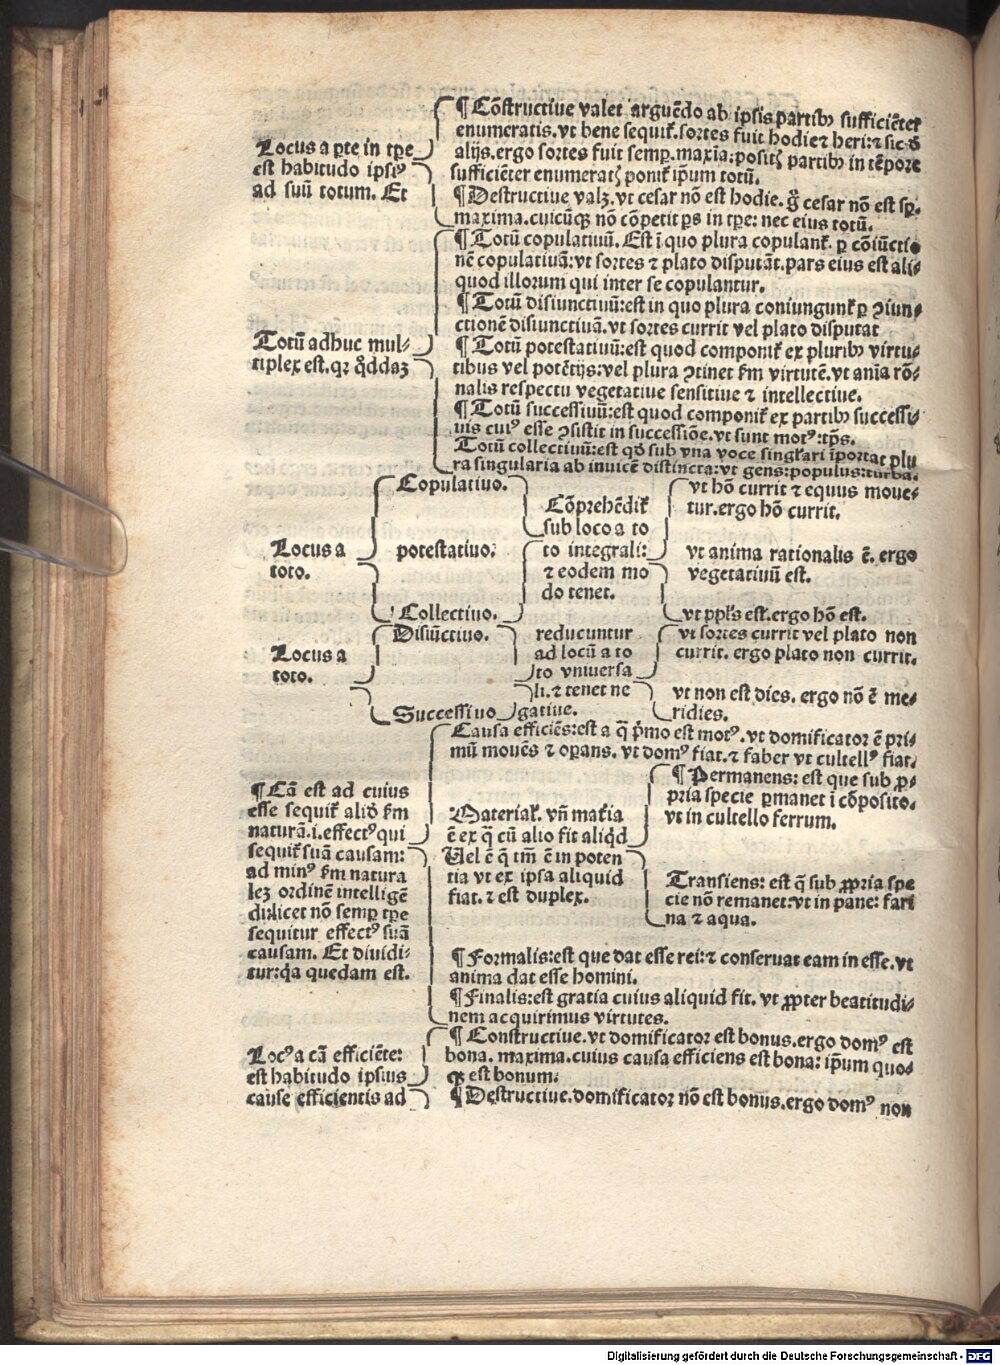 Locus a pte in tpe
est habitudo ipsiꝰ
ad suū totum. Et
¶ Cōstructiue valet arguēdo ab ipsis partibꝫ sufficiēter
enumeratis. vt bene sequit᷑. sortes fuit hodie ⁊ heri: ⁊ sic d̄
alijs. ergo sortes fuit semꝑ. maxīa: positꝭ partibꝫ in tēpore
sufficiēter enumeratꝭ ponit᷑ ip̄um totū.
¶ Destructiue valꝫ. vt cesar nō est hodie. gͦ cesar nō est sꝑ.
maxima. cuicūqꝫ nō cōpetit ps in tpe: nec eius totū.
Totū adhuc mul⸗
tiplex est. qꝛ qͦddaꝫ
¶ Totū copulatiuū. Est ī quo plura copulant᷑. ꝑ cōiūctio
nē copulatiuā: vt sortes ⁊ plato disputāt. pars eius est ali⸗
quod illorum qui inter se copulantur.
¶ Totū disiunctiuū: est in quo plura coniungunt᷑ ꝑ ꝯiun⸗
ctionē disiunctiuā. vt sortes currit vel plato disputat
¶ Totū potestatiuū: est quod componit᷑ ex pluribꝫ virtu⸗
tibus vel potētijs: vel plura ꝯtinet fm virtutē. vt anīa rō⸗
nalis respectu vegetatiue sensitiue ⁊ intellectiue.
¶ Totū successiuū: est quod componit᷑ ex partibꝫ successi⸗
uis cuiꝰ esse ꝯsistit in successiōe. vt sunt motꝰ: tp̄s.
Totū collectiuū: est qd̄ sub vna voce singl᷑ari īportat plu
ra singularia ab inuicē distincta: vt gens: populus: turba.
Locus a
toto.
Copulatiuo.
potestatiuo.
Collectiuo.
Cōprehēdit᷑
sub loco a to
to integrali:
⁊ eodem mo
do tenet.
vt hō currit ⁊ equus moue⸗
tur. ergo hō currit.
vt anima rationalis ē. ergo
vegetatiuū est.
vt ppl̄s est. ergo hō est.
Locus a
toto.
Disiūctiuo.
Successiuo
reducuntur
ad locū a to
to vniuersa
li. ⁊ tenet ne
gatiue.
vt sortes currit vel plato non
currit. ergo plato non currit.
vt non est dies. ergo nō ē me⸗
ridies.
¶ Cā est ad cuius
esse sequit᷑ aliđ fm
naturā. i. effectꝰ qui
sequit᷑ suā causam:
ad minꝰ fm natura
leꝫ ordinē intelligē
di. licet nō semꝑ tpe
sequitur effectꝰ suā
causam. Et diuidi⸗
tur: qꝛ quedam est.
Causa efficiēs: est a q̄ pͥmo est motꝰ. vt domificator ē pri⸗
mū mouēs ⁊ oꝑans. vt domꝰ fiat. ⁊ faber vt cultellꝰ fiat.
Material᷑. vn̄ mat᷑ia
ē ex q̄ cū alio fit aliqd
Uel ē q̄ tm̄ ē in poten
tia vt ex ipsa aliquid
fiat. ⁊ est duplex.
¶ Permanens: est que sub ꝓ⸗
pria specie ꝑmanet ī cōposito.
vt in cultello ferrum.
Transiens: est q̄ sub ꝓpria spe
cie nō remanet: vt in pane: fari
na ⁊ aqua.
¶ Formalis: est que dat esse rei: ⁊ conseruat eam in esse. vt
anima dat esse homini.
¶ Finalis: est gratia cuius aliquid fit. vt ꝓpter beatitudi⸗
nem acquirimus virtutes.
Locꝰ a cā efficiēte:
est habitudo ipsius
cause efficientis ad
¶ Constructiue. vt domificator est bonus. ergo domꝰ est
bona. maxima. cuius causa efficiens est bona: ip̄um quo⸗
qꝫ est bonum.
¶ Destructiue. domificator nō est bonus. ergo domꝰ non
Digitalisierung gefördert durch die Deutsche Forschungsgemeinschaft - DFG